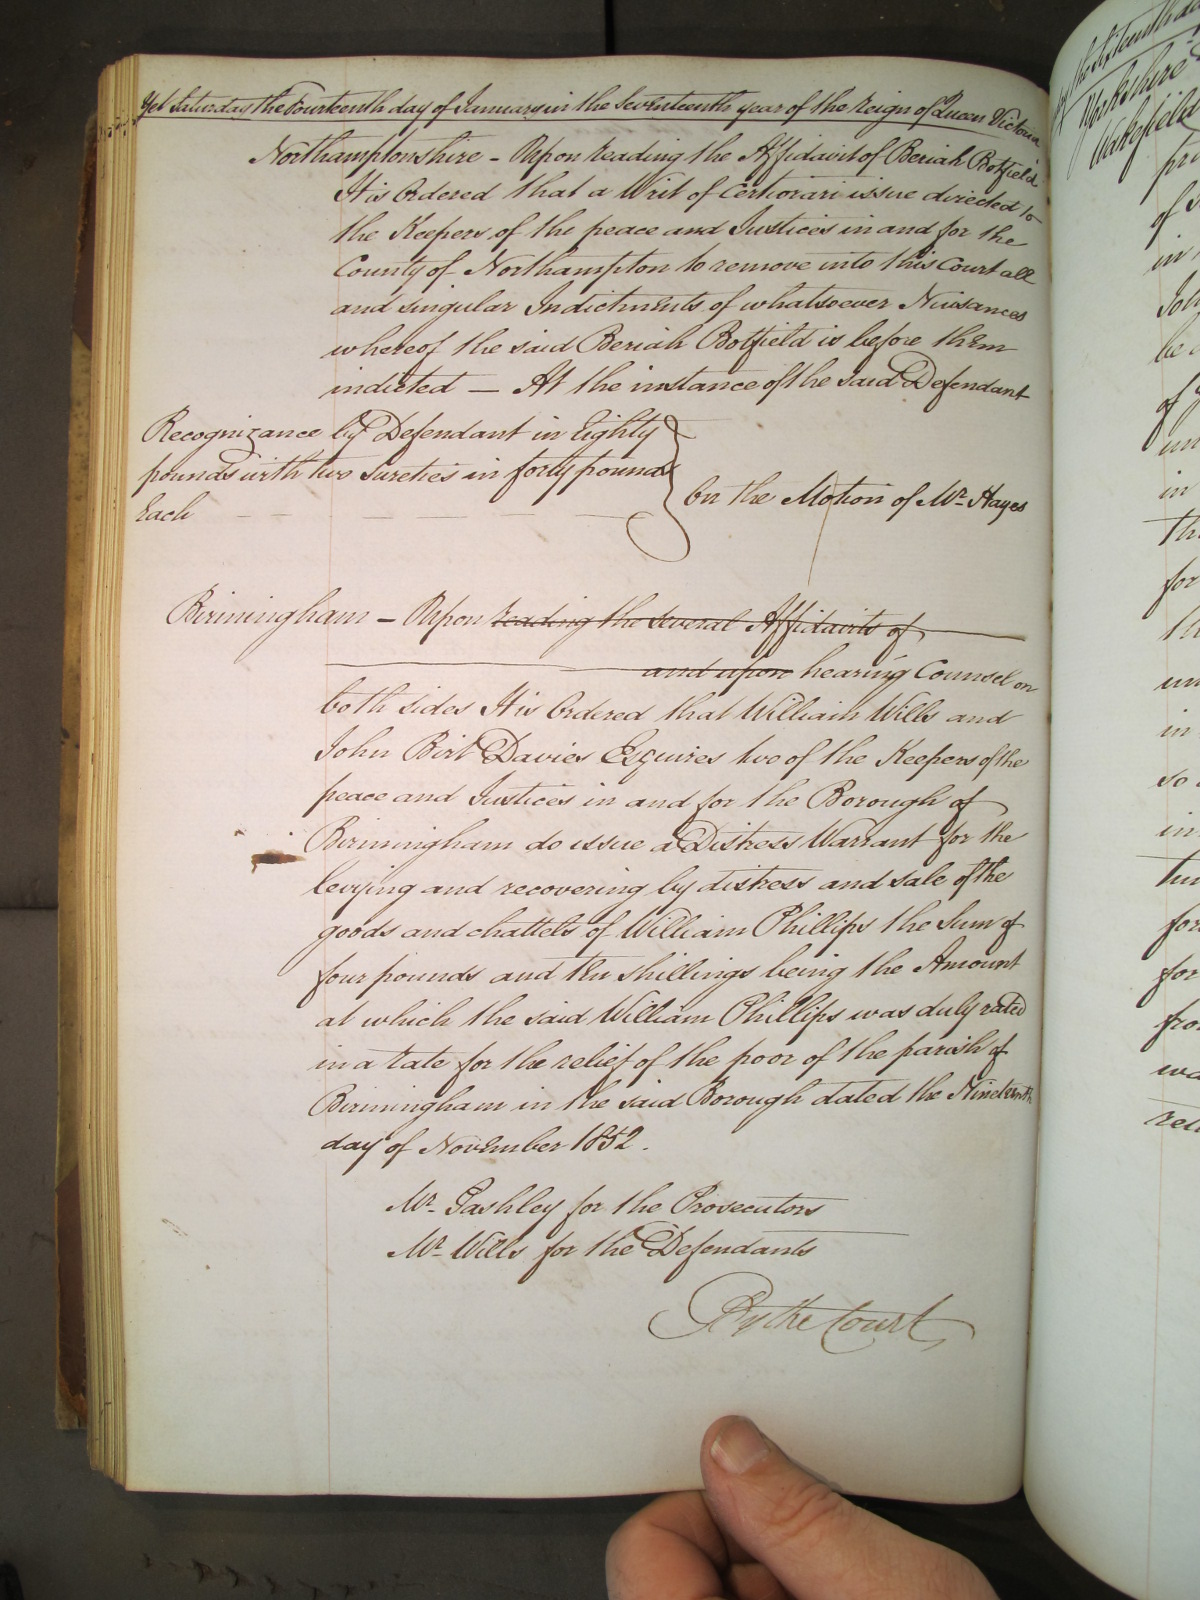 Yet Saturday the Fourteenth day of January in the Seventeenth year of the Reign of Queen Victoria
Northamptonshire – Upon reading the Affidavit of Beriah Botfield
It is Ordered that a Writ of Certiorari issue directed to
the Keepers of the peace and Justices in and for the
County of Northampton to remove into this Court all
and singular Indictments of whatsoever Nuisances
whereof the said Beriah Botfield is before them
indicted — At the instance of the said Defendant
Recognizance by Defendant in Eighty
pounds with two sureties in forty pounds
Each
On the Motion of Mr. Hayes
Birmingham – Upon reading the several Affidavits of
and upon hearing Counsel on
both sides It is Ordered that William Wills and
John Birt Davies Esquires two of the Keepers of the
peace and Justices in and for the Borough of
Birmingham do issue a Distress Warrant for the
levying and recovering by distress and sale of the
goods and chattels of William Phillips the Sum of
four pounds and ten shillings being the Amount
at which the said William Phillips was duly rated
in a rate for the relief of the poor of the parish of
Birmingham in the said Borough dated the Nineteenth
day of November 1852.
Mr. Pashley for the Prosecutors
Mr. Wills for the Defendants
By the Court
the Sixteenth da
Yorkshire
Wakefield
pri
of
in
be
of
in
in
th
for
un
in
so
in
for
for
fro
wa